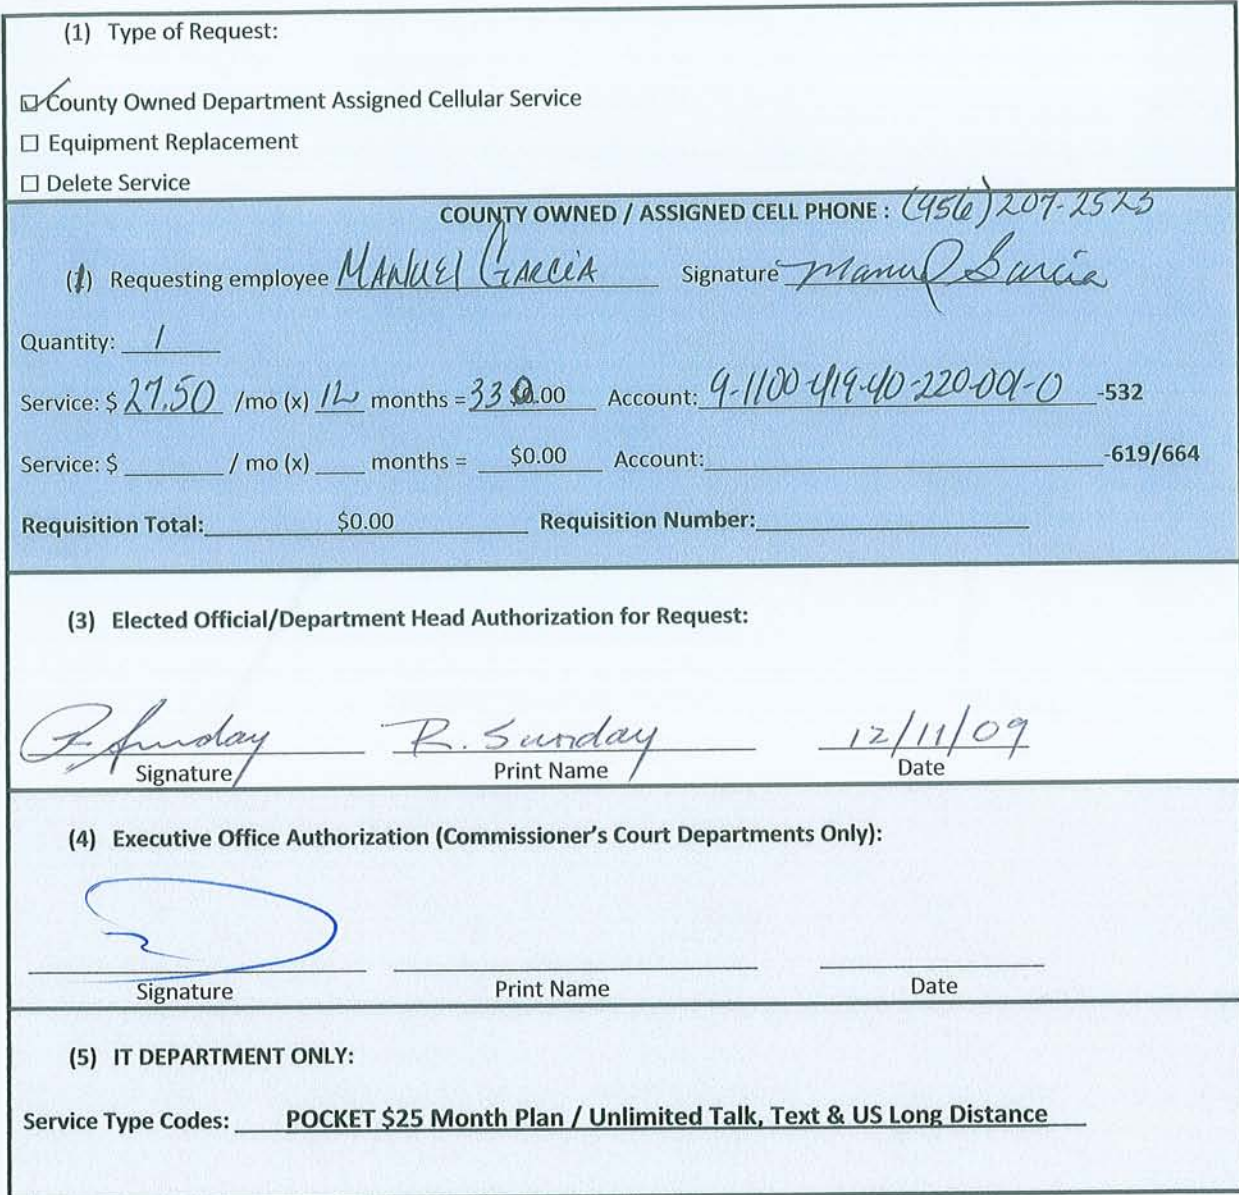 (1) Type of Request:
☑ County Owned Department Assigned Cellular Service
☐ Equipment Replacement
☐ Delete Service
COUNTY OWNED / ASSIGNED CELL PHONE : (956) 207-2525
(1) Requesting employee MANUEL GARCIA Signature Manuel Garcia
Quantity: 1
Service: $ 27.50 /mo (x) 12 months = 330.00 Account: 9-1100-419-40-220-001-0 -532
Service: $ / mo (x) months = $0.00 Account: -619/664
Requisition Total: $0.00 Requisition Number:
(3) Elected Official/Department Head Authorization for Request:
R. Sunday R. Sunday 12/11/09
Signature Print Name Date
(4) Executive Office Authorization (Commissioner's Court Departments Only):
Signature Print Name Date
(5) IT DEPARTMENT ONLY:
Service Type Codes: POCKET $25 Month Plan / Unlimited Talk, Text & US Long Distance